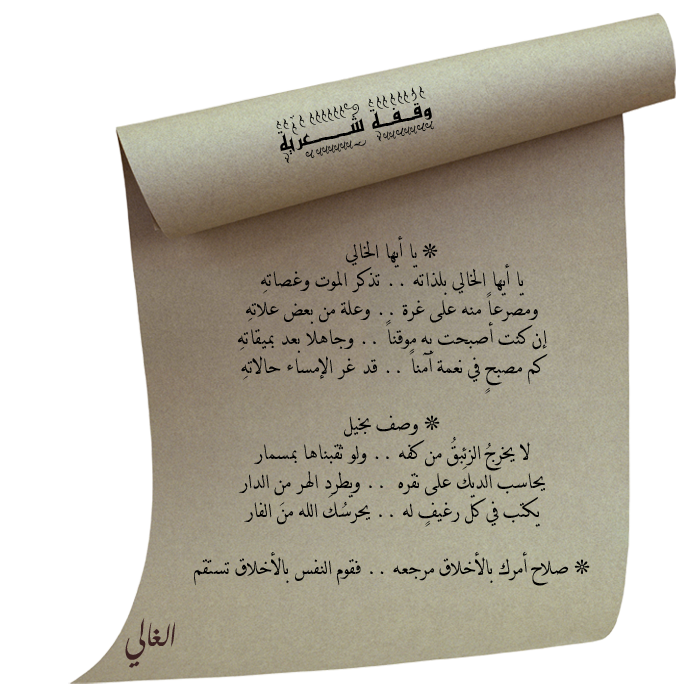 وقفة شعرية
❊ يا أيها الخالي
يا أيها الخالي بلذاته . . تذكر الموت وغصاتهِ
ومصرعاً منه على غرة . . وعلة من بعض علاتهِ
إن كنت أصبحت به موقناً . . وجاهلا بعد بميقاتهِ
كم مصبحٍ في نعمة آمناً . . قد غر الإمساء حالاتهِ
❊ وصف بخيل
لا يخرجُ الزئبقُ من كفه . . ولو ثقبناها بمسمار
يحاسب الديك على نقره . . ويطردِ الهر من الدار
يكتب في كل رغيفٍ له . . يحرسُك الله منَ الفار
❊ صلاح أمرك بالأخلاق مرجعه . . فقوم النفس بالأخلاق تستقم
الغالي